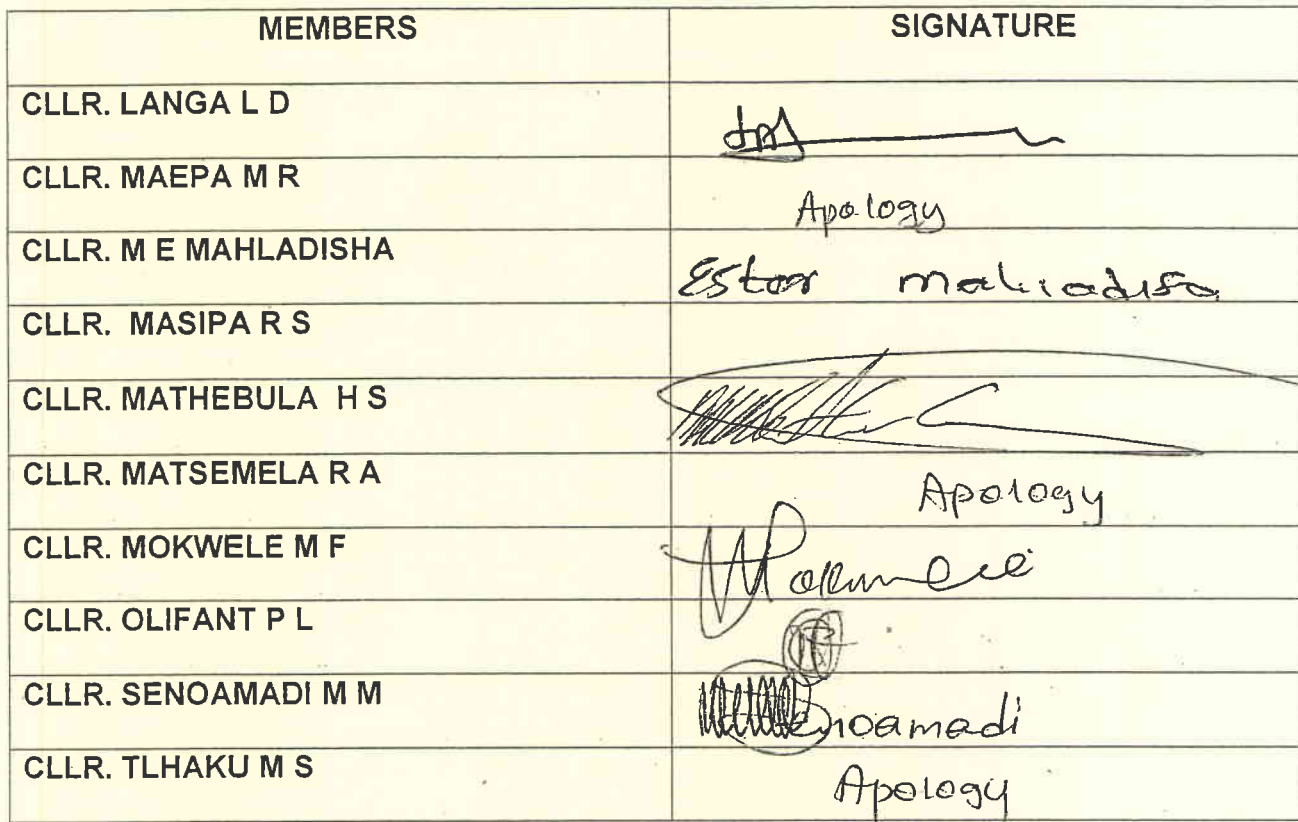 MEMBERS SIGNATURE
CLLR. LANGA L D
CLLR. MAEPA M R Apology
CLLR. M E MAHLADISHA Estor
CLLR. MASIPA R S
CLLR. MATHEBULA H S
CLLR. MATSEMELA R A Apology
CLLR. MOKWELE M F
CLLR. OLIFANT P L
CLLR. SENOAMADI M M Senoamadi
CLLR. TLHAKU M S Apology